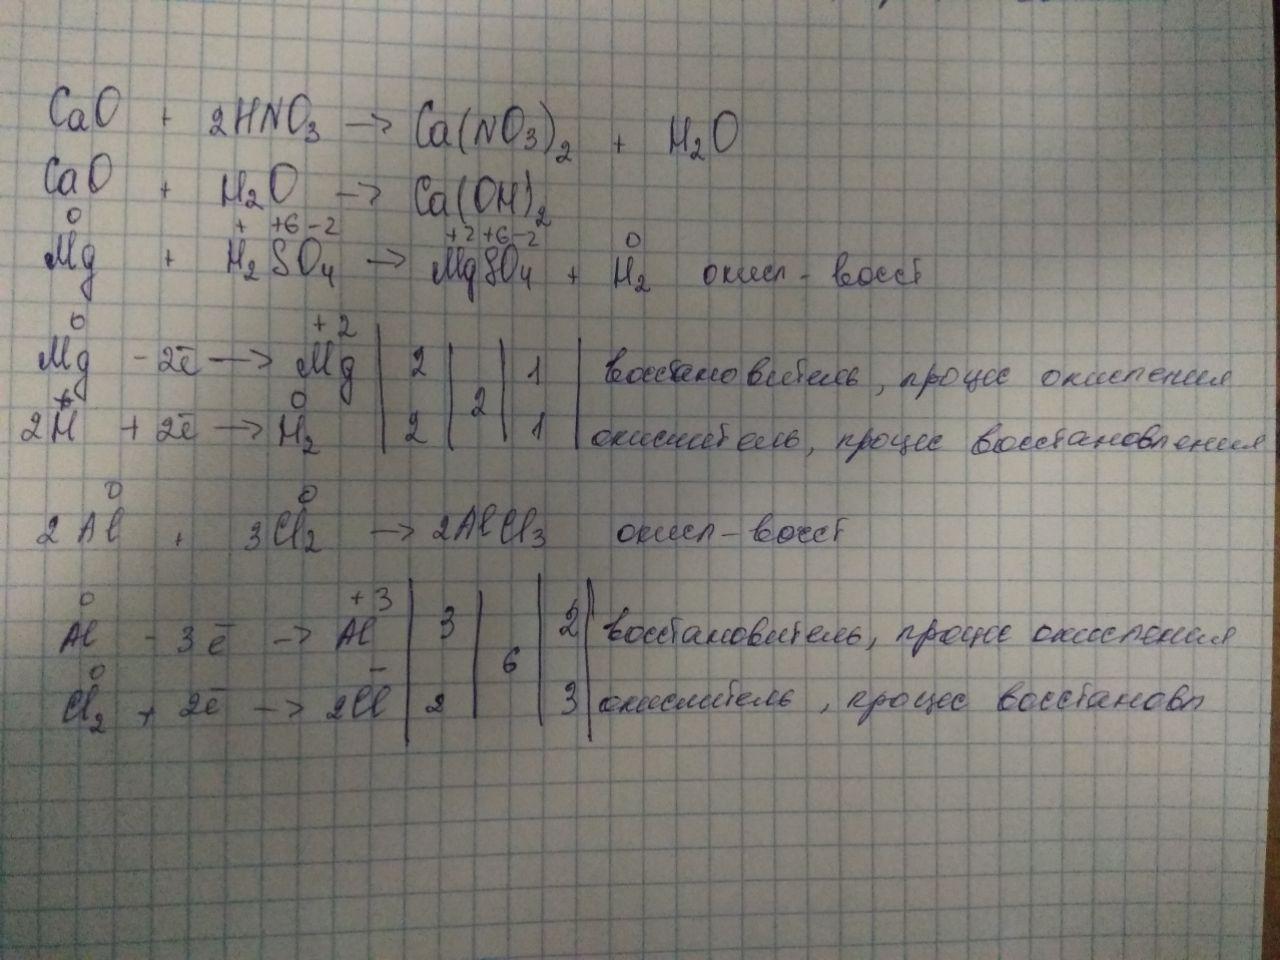 CaO + 2HNO3 → Ca(NO3)2 + H2O
CaO + H2O → Ca(OH)2
0 + +6 -2 +2 +6 -2 0
Mg + H2SO4 → MgSO4 + H2 окисл - восст
0 +2
Mg - 2ē → Mg | 2 | | 1 | восстановитель, процес окисления
+ 0 2
2H + 2ē → H2 | 2 | | 1 | окислитель, процес восстановления
0 0
2Al + 3Cl2 → 2AlCl3 окисл - восст
0 +3
Al - 3ē → Al | 3 | | 2 | восстановитель, процес окисления
0 - 6
Cl2 + 2ē → 2Cl | 2 | | 3 | окислитель, процес восстановл